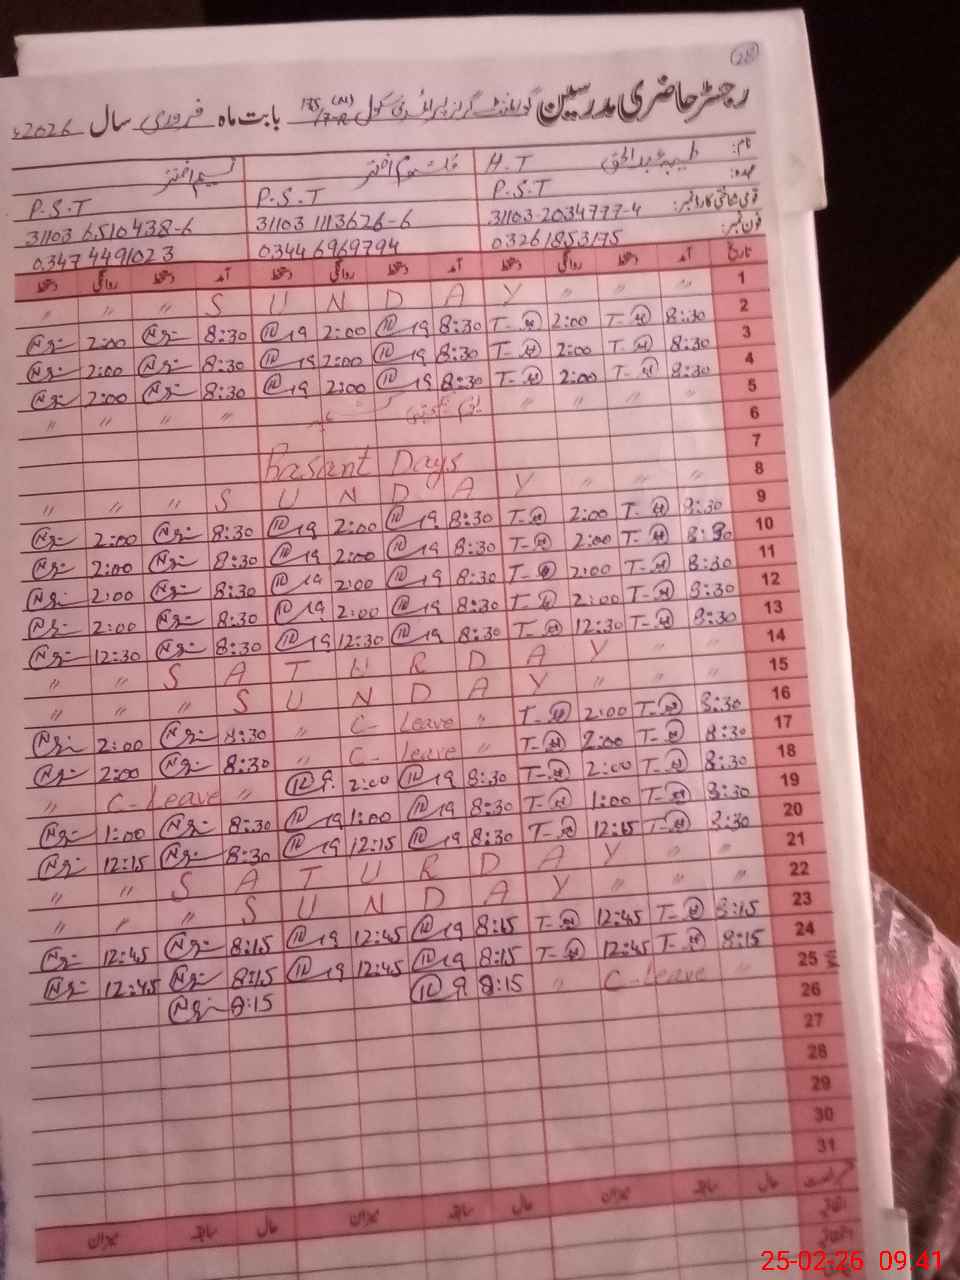 28
رجسٹر حاضری مدرسین گورنمنٹ گرلز پرائمری سکول 175/7-R بابت ماہ فروری سال 2026ء
نام: طیبہ عبدالحق H.T کلثوم اختر نسیم اختر
عہدہ: P.S.T P.S.T P.S.T
قومی شناختی کارڈ نمبر: 31103-2034777-4 31103 1113626-6 31103 6510438-6
فون نمبر: 03261853175 0344 6969794 0347 4491023
تاریخ آمد دستخط روانگی دستخط آمد دستخط روانگی دستخط آمد دستخط روانگی دستخط
1 " " " S U N D A Y " " "
2 8:30 T- 2:00 T- 8:30 2:00 8:30 2:00
3 8:30 T- 2:00 T- 8:30 2:00 8:30 2:00
4 8:30 T- 2:00 T- 8:30 2:00 8:30 2:00
5 " " " " " " "
6
7 Basant Days
8 " " " S U N D A Y " " "
9 8:30 T- 2:00 T- 8:30 2:00 8:30 2:00
10 8:30 T- 2:00 T- 8:30 2:00 8:30 2:00
11 8:30 T- 2:00 T- 8:30 2:00 8:30 2:00
12 8:30 T- 2:00 T- 8:30 2:00 8:30 2:00
13 8:30 T- 12:30 T- 8:30 12:30 8:30 12:30
14 " " S A T U R D A Y " "
15 " " " S U N D A Y " " "
16 8:30 T- 2:00 T- " C-Leave " 8:30 2:00
17 8:30 T- 2:00 T- " C-Leave " 8:30 2:00
18 8:30 T- 2:00 T- 8:30 2:00 " C-Leave "
19 8:30 T- 1:00 T- 8:30 1:00 8:30 1:00
20 8:30 T- 12:15 T- 8:30 12:15 8:30 12:15
21 " " S A T U R D A Y " "
22 " " " S U N D A Y " " "
23 8:15 T- 12:45 T- 8:15 12:45 8:15 12:45
24 8:15 T- 12:45 T- 8:15 12:45 8:15 12:45
25 " C-Leave " 8:15 8:15
26
27
28
29
30
31
حال سابقہ میزان حال سابقہ میزان حال سابقہ میزان
25-02-26 09:41